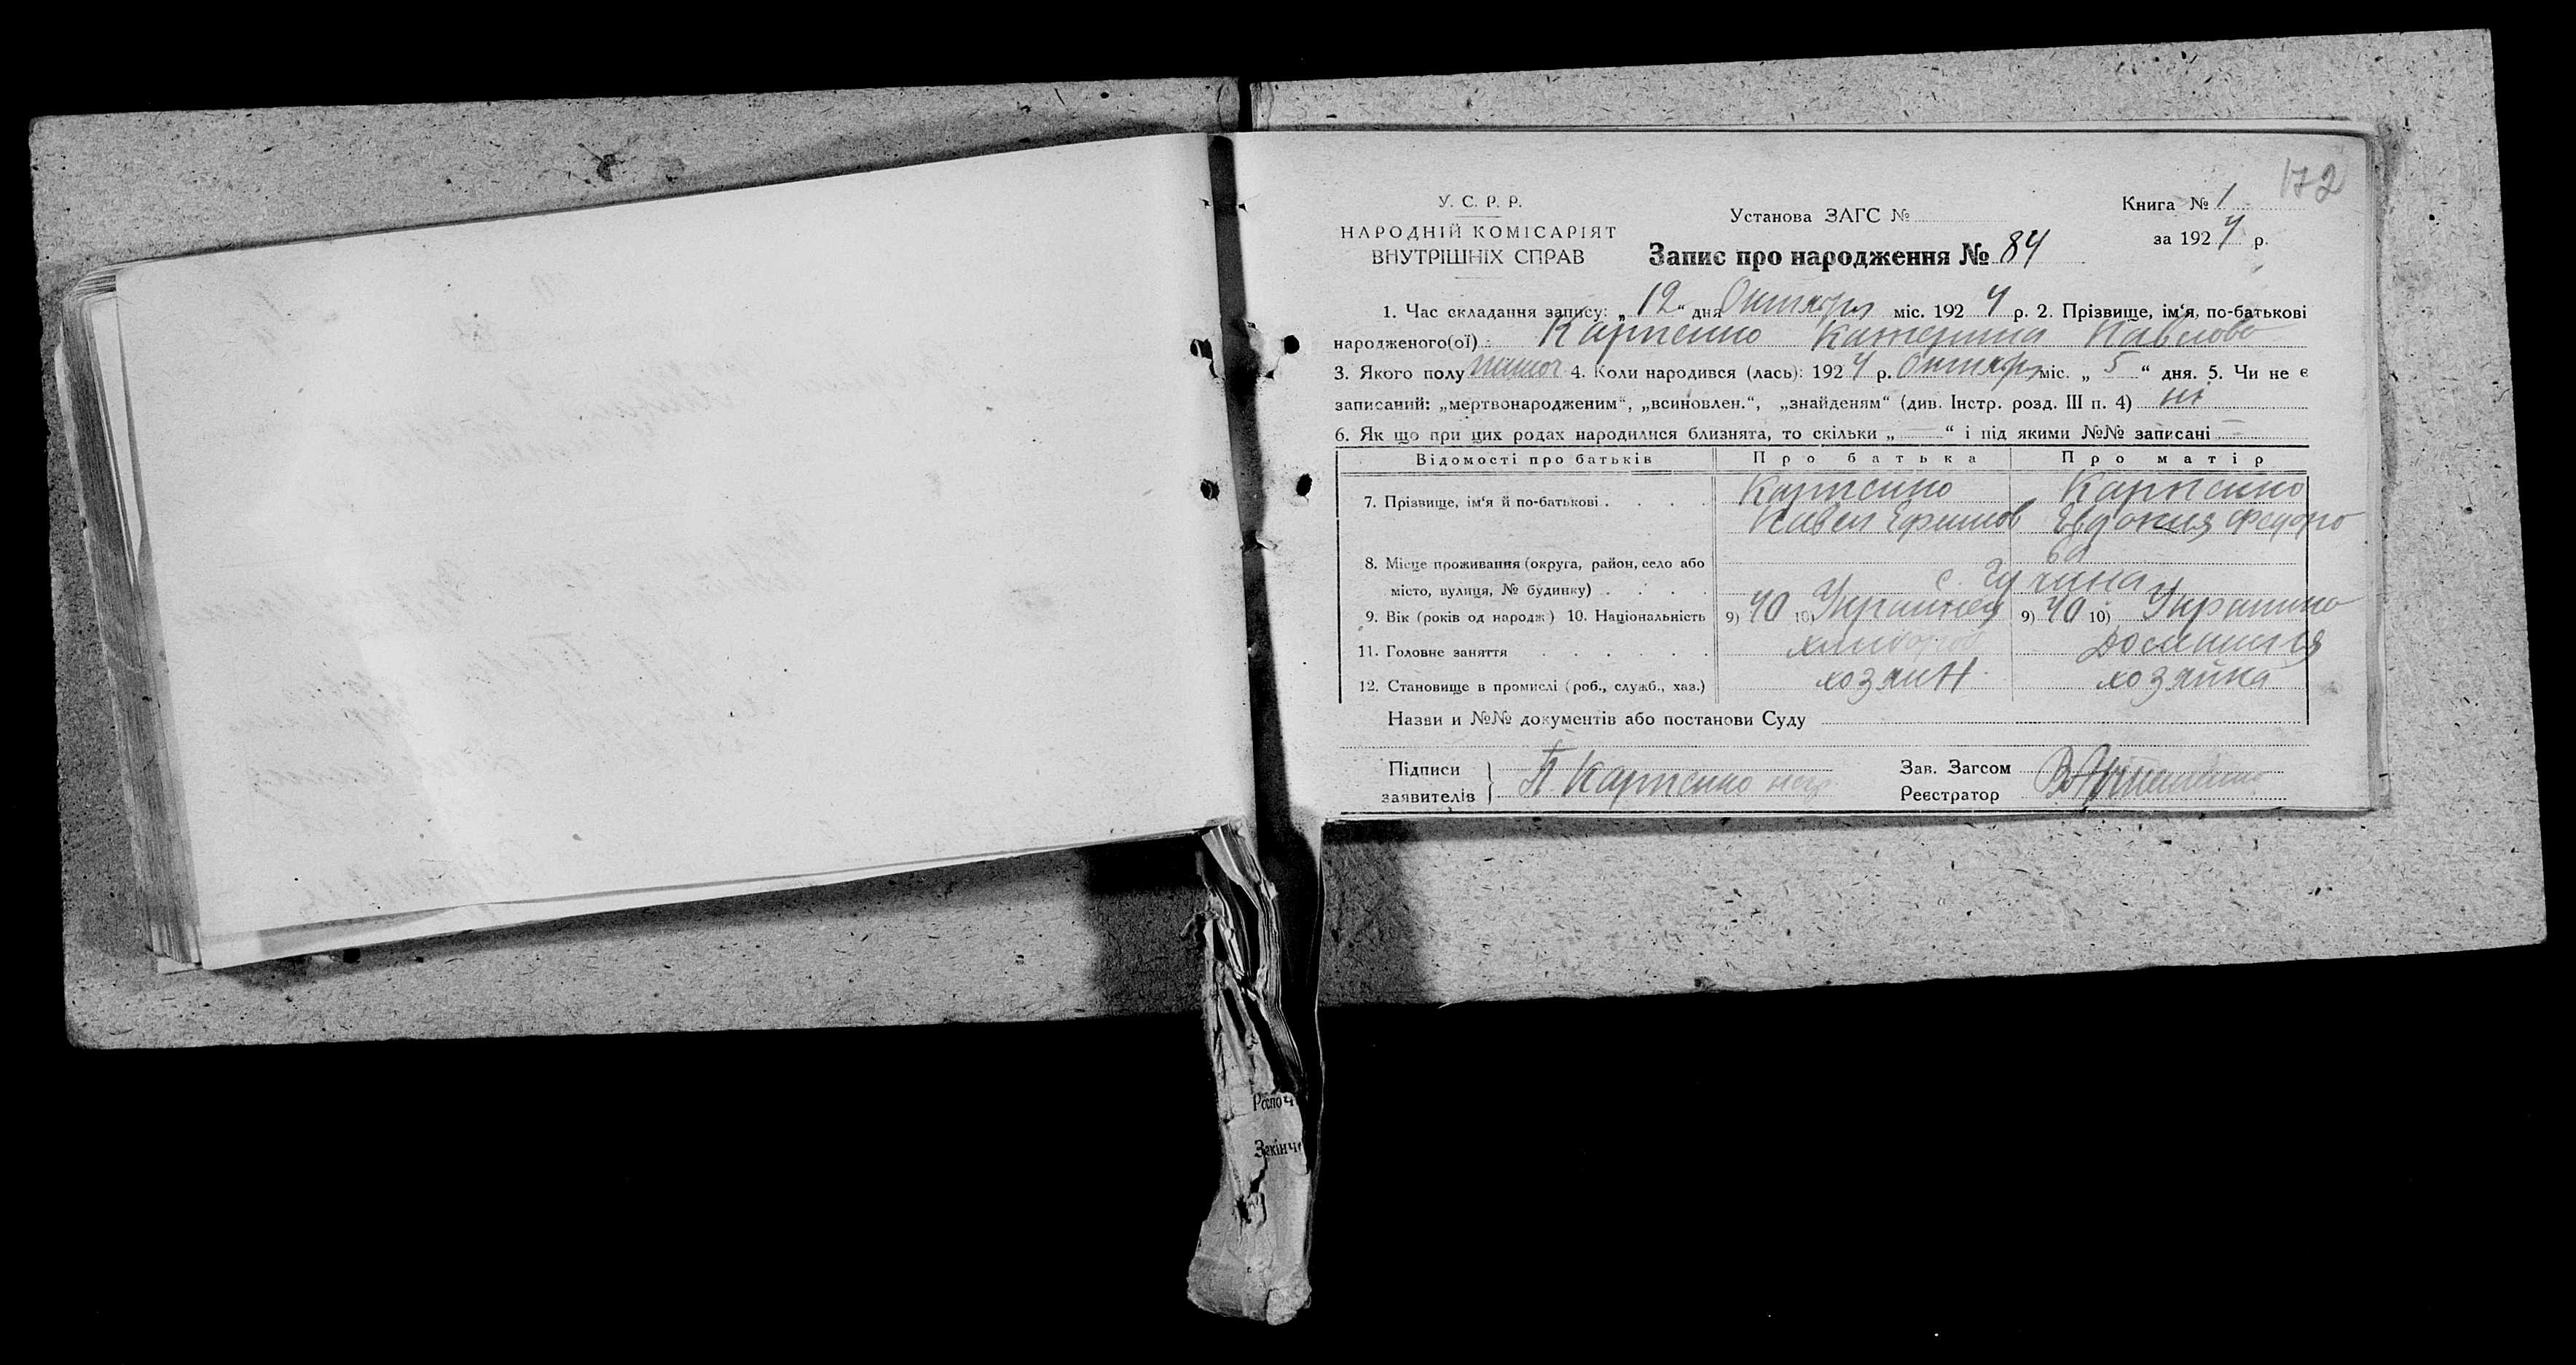 172
У. С. Р. Р.
НАРОДНІЙ КОМІСАРІЯТ
ВНУТРІШНІХ СПРАВ
Установа ЗАГС №
Книга № 1
за 1924 р.
Запис про народження № 84
1. Час складання запису: „12“ дня Октября міс. 1924 р. 2. Прізвище, ім‘я, по-батькові
народженого(ої) : Карпенко Катерина Павлова
3. Якого полу 4. Коли народився (лась): 1924 р. Октября міс. „5“ дня. 5. Чи не є
записаний: „мертвонародженим“, „всиновлен.“, „знайденям“ (див. Інстр. розд. III п. 4) ні
6. Як що при цих родах народилися близнята, то скільки „—“ і під якими №№ записані —
Відомості про батьків Про батька Про матір
7. Прізвище, ім‘я й по-батькові . . . . Карпенко Карпенко
Павел Ефимов Евдокия Федоро
ва
8. Місце проживання (округа, район, село або
місто, вулиця, № будинку) . . . . с.
9. Вік (років од народж) 10. Національність 9) 40 10) 9) 40 10)
11. Головне заняття . . . . . . хлибороб
12. Становище в промислі (роб., служб., хаз.) хозяин хозяйка
Назви и №№ документів або постанови Суду
Підписи
заявителів } П. Карпенко
Зав. Загсом
Реєстратор
Розпоч
Закінче